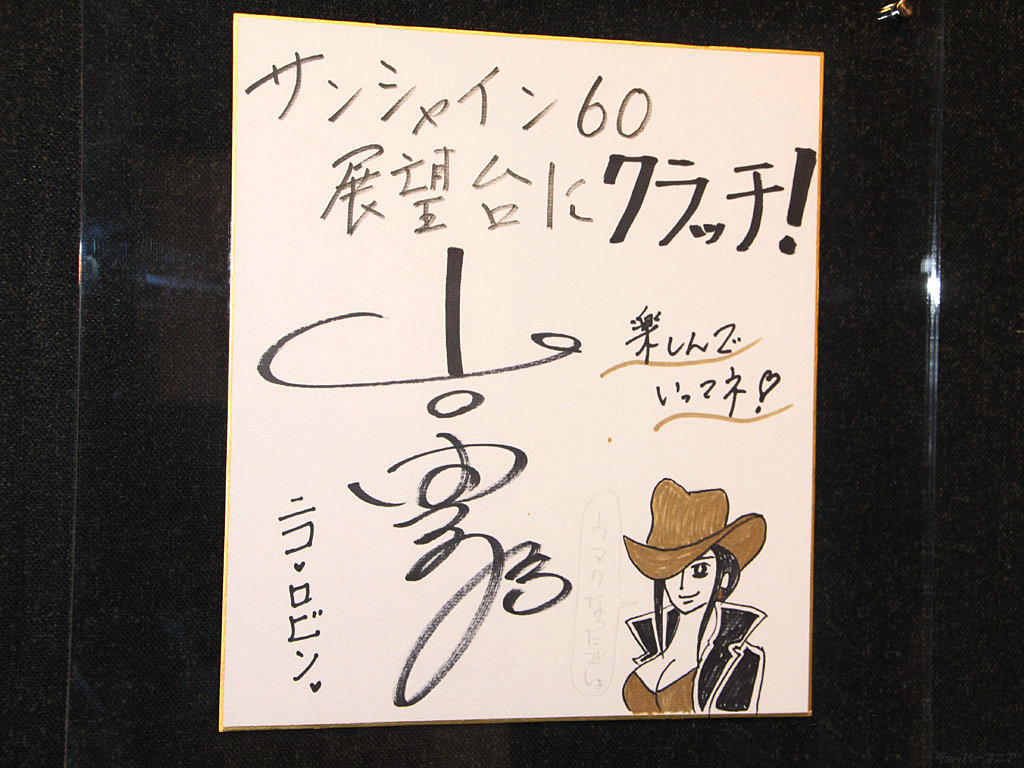 サンシャイン60
展望台にクラッチ!
楽しんで
いってネ!
ニコ・ロビン
ウマクなったでしょ